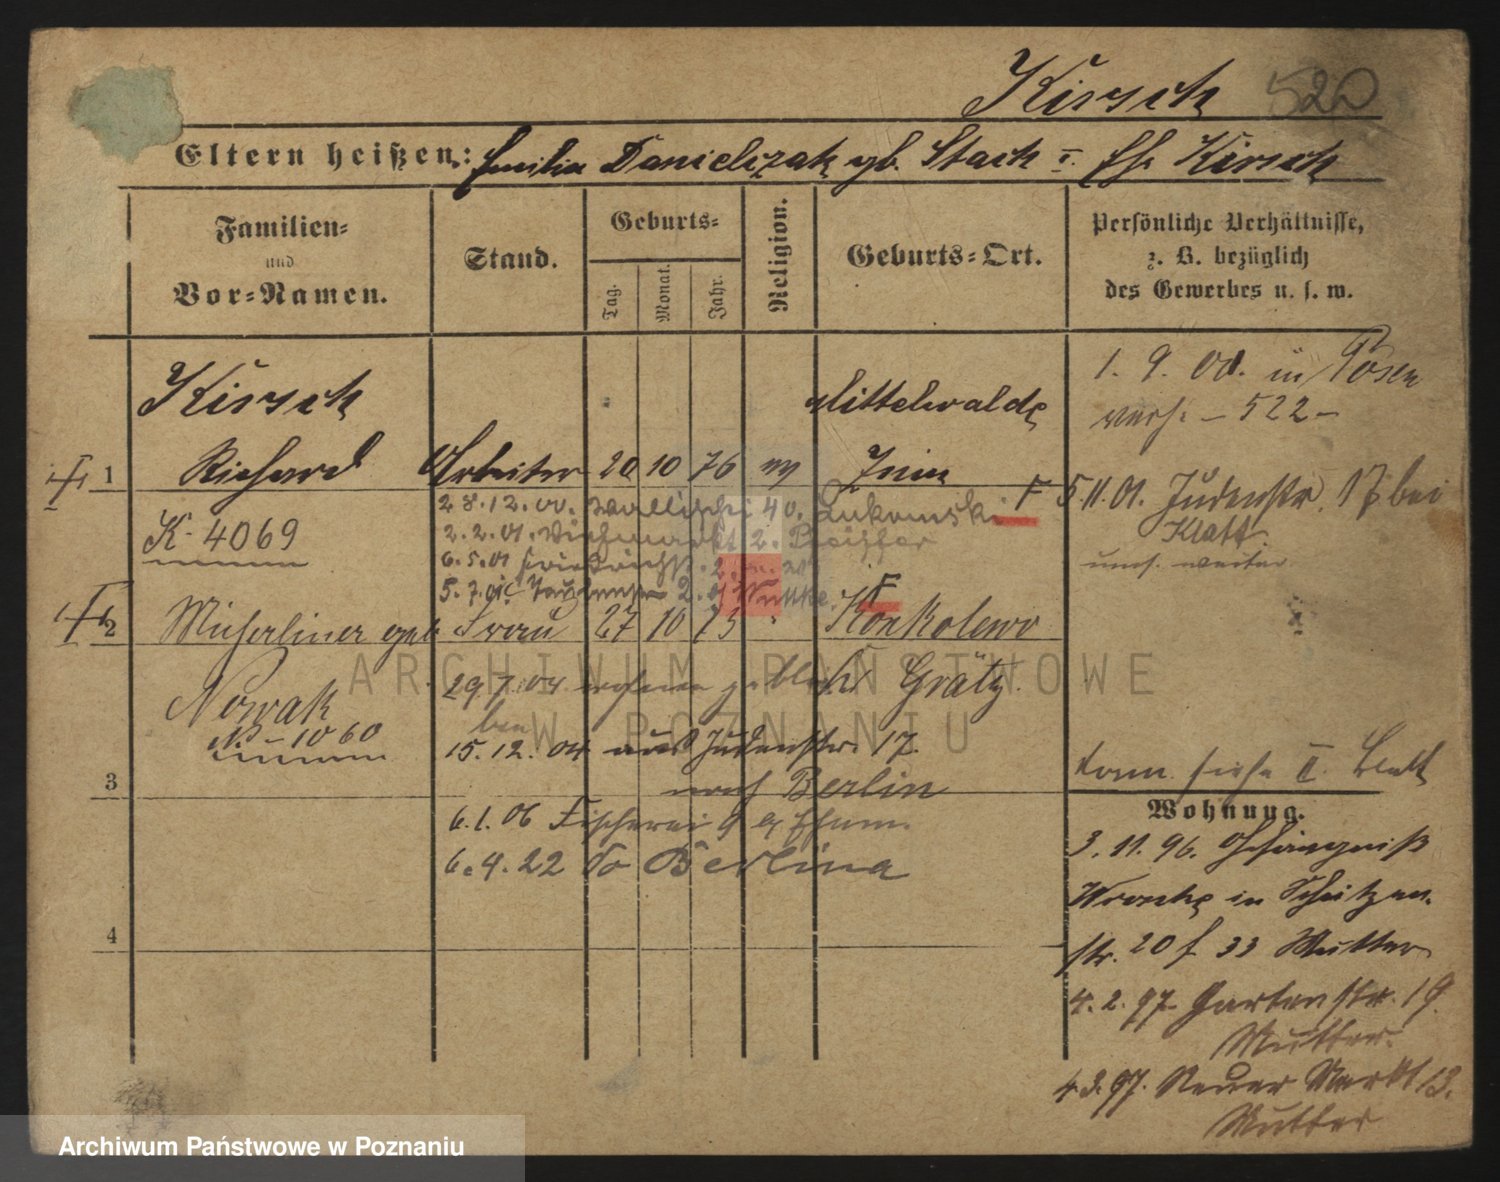 Kirsch 520
Eltern heißen: Emilia Danielczak gb. Stach I. Eh. Kirsch
Familien=
und
Vor=Namen.
Stand.
Geburts=
Tag.
Monat.
Jahr.
Religion.
Geburts=Ort.
Persönliche Verhältnisse,
z. B. bezüglich
des Gewerbes u. s. w.
Kirsch Mittelwalde
1 Richard Arbeiter 20 10 76 Znin
K. 4069
28.12.00. Wallischei 40. Lukomski F
2.2.01. Viehmarkt 2. Pfeiffer
6.5.01 Friedrichstr.
5.7.01. 2 Wuttke. F
2 geb. Frau 27 10 75 Konkolewo
Nowak
No – 1060
29.7.04 Kr. Grätz
15.12.04 aus Judenstr. 17.
nach Berlin
3
6.1.06 Fischerei 9
6.4.22 do Berlina
4
1. 9. 00. in Posen
– 522 –
5.11.01. Judenstr. 17 bei
Klatt
weiter
siehe II. Blatt
Wohnung.
3.11.96. Gefängniß
Wronke in Schützen
str. 20 33 Mutter
4.2.97 Gartenstr. 19.
Mutter.
4.3.97. Neuer Markt 13.
Mutter
ARCHIWUM PAŃSTWOWE
W POZNANIU
Archiwum Państwowe w Poznaniu